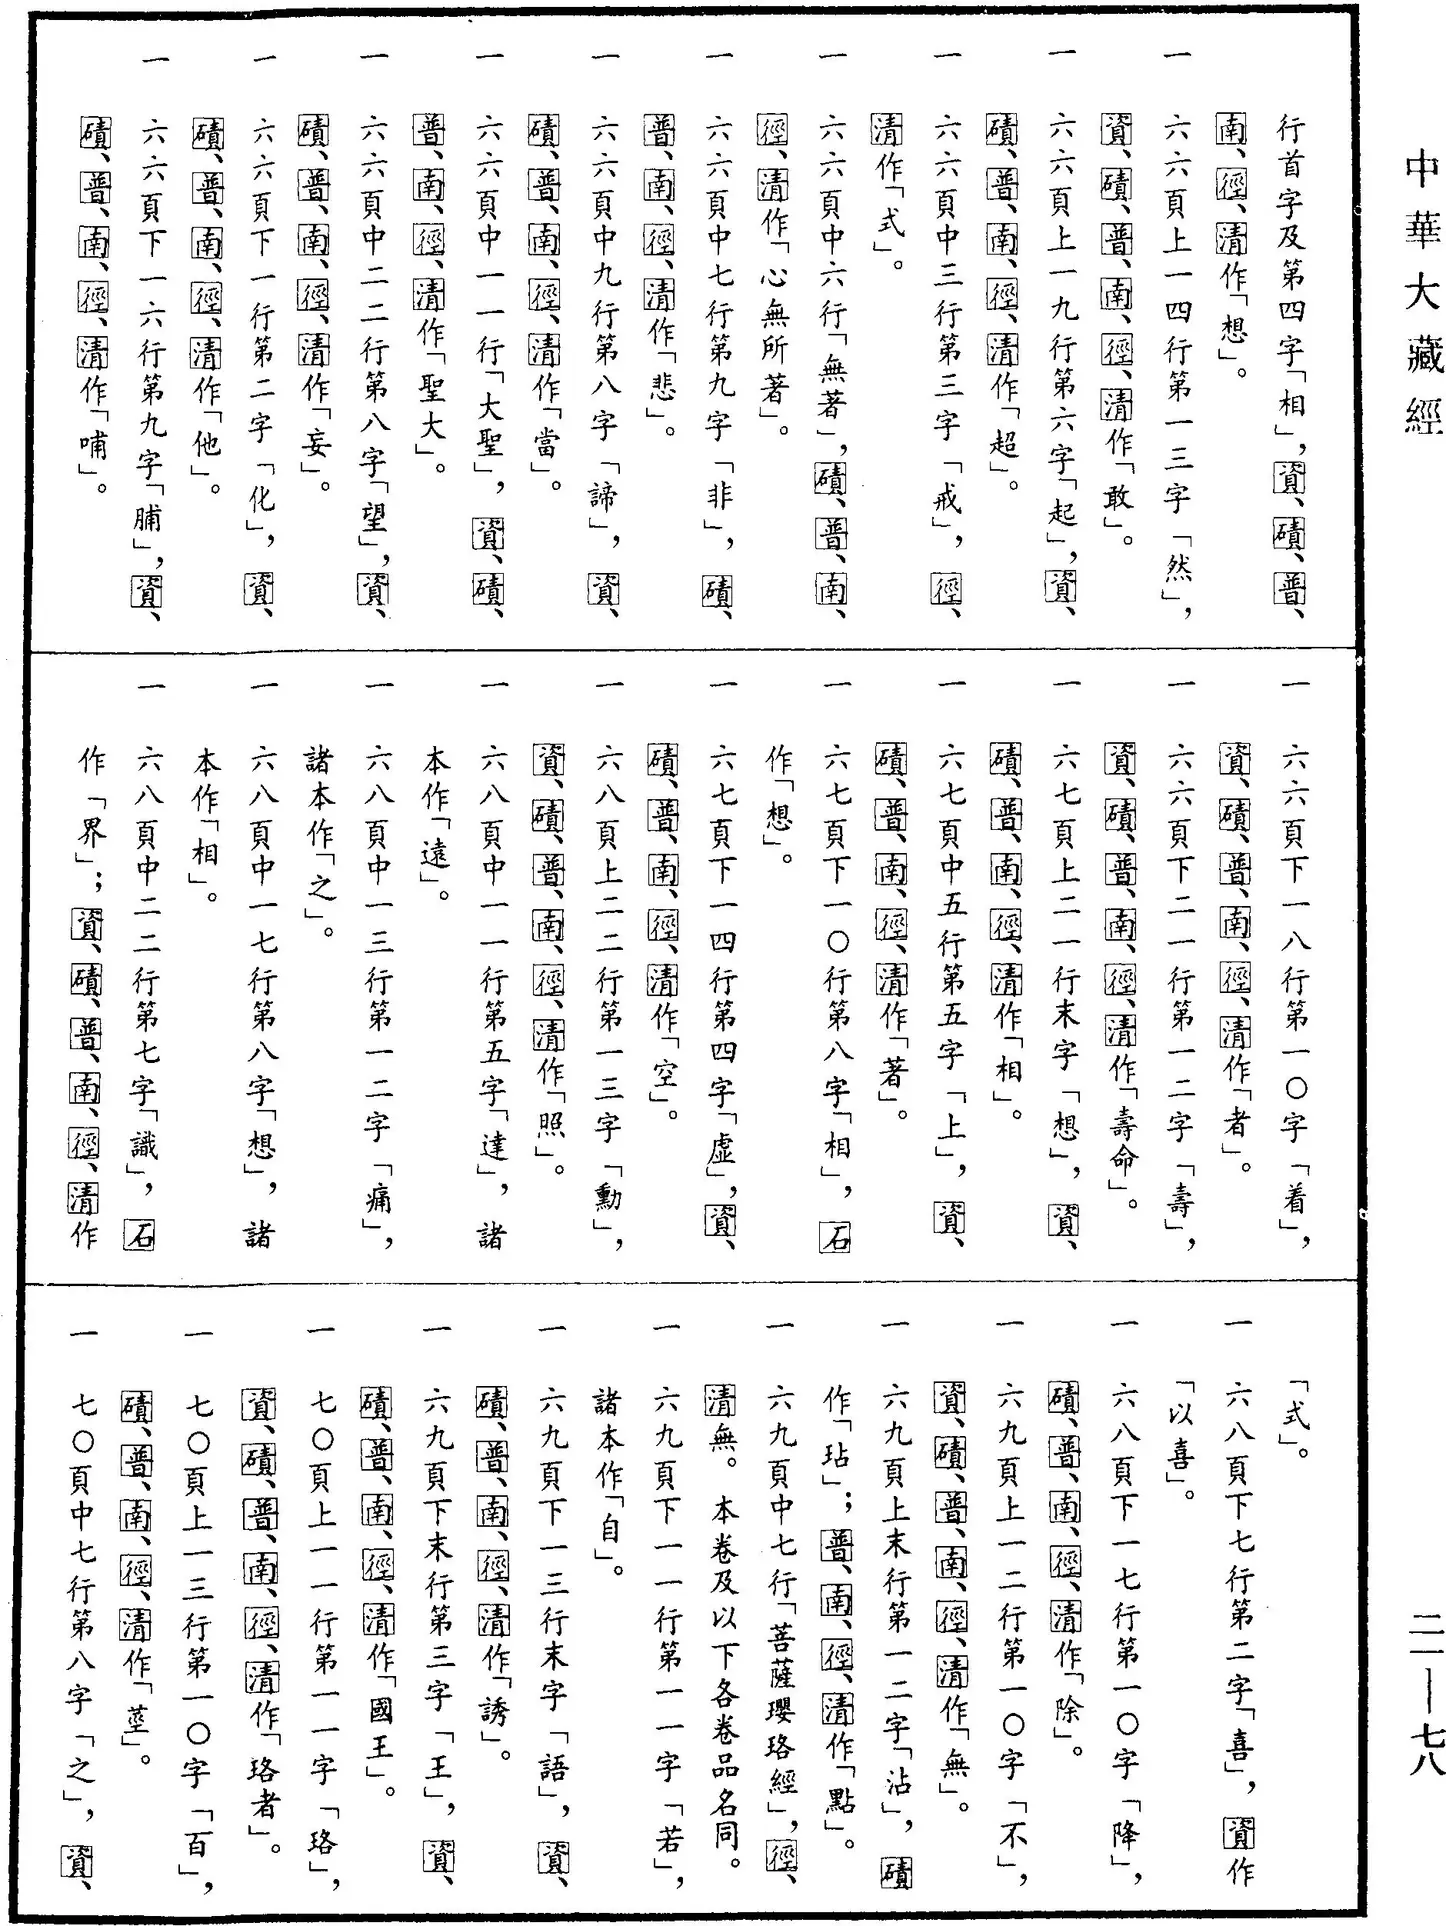 中華大藏經
二一—七八
行首字及第四字「相」，資、磧、普、
南、徑、清作「想」。
一 六六頁上一四行第一三字「然」，
資、磧、普、南、徑、清作「敢」。
一 六六頁上一九行第六字「起」，資、
磧、普、南、徑、清作「超」。
一 六六頁中三行第三字「戒」，徑、
清作「式」。
一 六六頁中六行「無著」，磧、普、南、
徑、清作「心無所著」。
一 六六頁中七行第九字「非」，磧、
普、南、徑、清作「悲」。
一 六六頁中九行第八字「諦」，資、
磧、普、南、徑、清作「當」。
一 六六頁中一一行「大聖」，資、磧、
普、南、徑、清作「聖大」。
一 六六頁中二二行第八字「望」，資、
磧、普、南、徑、清作「妄」。
一 六六頁下一行第二字「化」，資、
磧、普、南、徑、清作「他」。
一 六六頁下一六行第九字「脯」，資、
磧、普、南、徑、清作「哺」。
一 六六頁下一八行第一〇字「着」，
資、磧、普、南、徑、清作「者」。
一 六六頁下二一行第一二字「壽」，
資、磧、普、南、徑、清作「壽命」。
一 六七頁上二一行末字「想」，資、
磧、普、南、徑、清作「相」。
一 六七頁中五行第五字「上」，資、
磧、普、南、徑、清作「著」。
一 六七頁下一〇行第八字「相」，石
作「想」。
一 六七頁下一四行第四字「虛」，資、
磧、普、南、徑、清作「空」。
一 六八頁上二二行第一三字「勳」，
資、磧、普、南、徑、清作「照」。
一 六八頁中一一行第五字「達」，諸
本作「遠」。
一 六八頁中一三行第一二字「痛」，
諸本作「之」。
一 六八頁中一七行第八字「想」，諸
本作「相」。
一 六八頁中二二行第七字「識」，石
作「界」；資、磧、普、南、徑、清作
「式」。
一 六八頁下七行第二字「喜」，資作
「以喜」。
一 六八頁下一七行第一〇字「降」，
磧、普、南、徑、清作「除」。
一 六九頁上一二行第一〇字「不」，
資、磧、普、南、徑、清作「無」。
一 六九頁上末行第一二字「沾」，磧
作「玷」；普、南、徑、清作「點」。
一 六九頁中七行「菩薩瓔珞經」，徑、
清無。本卷及以下各卷品名同。
一 六九頁下一一行第一一字「若」，
諸本作「自」。
一 六九頁下一三行末字「語」，資、
磧、普、南、徑、清作「誘」。
一 六九頁下末行第三字「王」，資、
磧、普、南、徑、清作「國王」。
一 七〇頁上一一行第一一字「珞」，
資、磧、普、南、徑、清作「珞者」。
一 七〇頁上一三行第一〇字「百」，
磧、普、南、徑、清作「莖」。
一 七〇頁中七行第八字「之」，資、